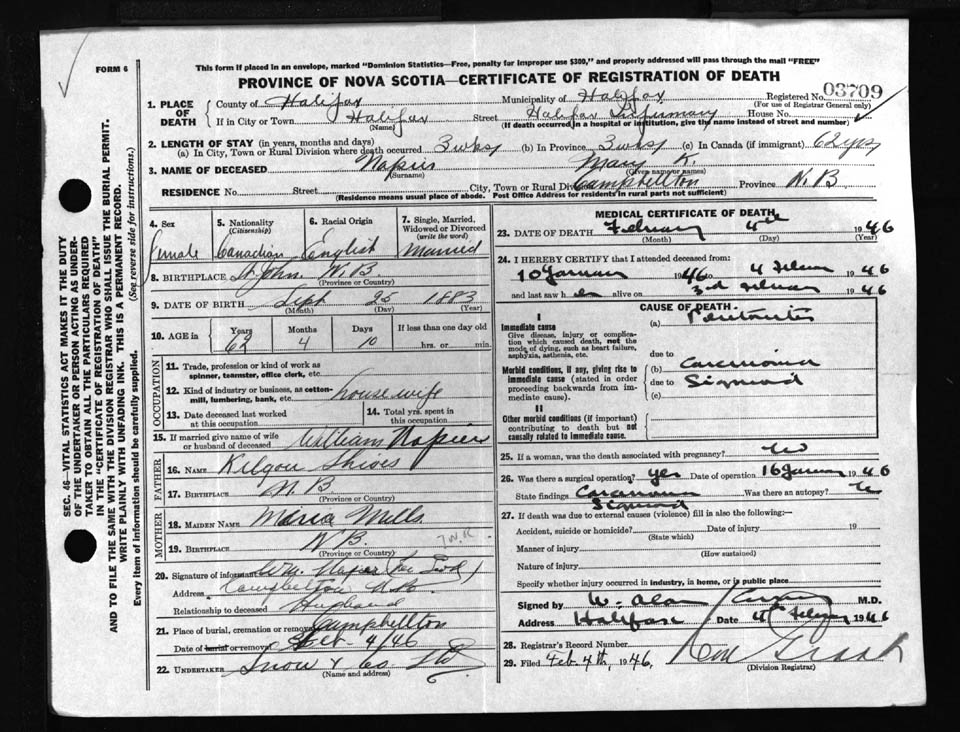 FORM 6
This form if placed in an envelope, marked "Dominion Statistics—Free, penalty for improper use $300," and properly addressed will pass through the mail "FREE"
PROVINCE OF NOVA SCOTIA—CERTIFICATE OF REGISTRATION OF DEATH
Registered No. 03709
(For use of Registrar General only)
1. PLACE OF DEATH
County of Halifax Municipality of Halifax
If in City or Town Halifax Street Halifax Infirmary House No.
(Name) (If death occurred in a hospital or institution, give the name instead of street and number)
2. LENGTH OF STAY (in years, months and days)
(a) In City, Town or Rural Division where death occurred 3 wks (b) In Province 3 wks (c) In Canada (if immigrant) 62 yrs
3. NAME OF DECEASED Napier Mary K.
(Surname) (Given name or names)
RESIDENCE No. Street City, Town or Rural Div. Campbellton Province N.B
(Residence means usual place of abode. Post Office Address for residents in rural parts not sufficient)
4. Sex Female
5. Nationality (Citizenship) Canadian
6. Racial Origin English
7. Single, Married, Widowed or Divorced (write the word) Married
8. BIRTHPLACE St John. N.B.
(Province or Country)
9. DATE OF BIRTH Sept 25 1883
(Month) (Day) (Year)
10. AGE in Years 62 Months 4 Days 10 If less than one day old hrs. or min.
OCCUPATION
11. Trade, profession or kind of work as spinner, teamster, office clerk, etc.
12. Kind of industry or business, as cotton-mill, lumbering, bank, etc. housewife
13. Date deceased last worked at this occupation
14. Total yrs. spent in this occupation
15. If married give name of wife or husband of deceased William Napier
FATHER
16. NAME Kilgour Shives
17. BIRTHPLACE N.B.
(Province or Country)
MOTHER
18. MAIDEN NAME Maria Mills
19. BIRTHPLACE N B.
(Province or Country)
20. Signature of informant Wm. Napier
Address Campbellton N.B.
Relationship to deceased Husband
21. Place of burial, cremation or removal Campbellton
Date of burial or removal Feb. 4/46
22. UNDERTAKER Snow & Co. Ltd
(Name and address)
MEDICAL CERTIFICATE OF DEATH
23. DATE OF DEATH February 4th 1946
(Month) (Day) (Year)
24. I HEREBY CERTIFY that I attended deceased from:
10 January 1946 to 4 February 1946
and last saw her alive on 3rd February 1946
CAUSE OF DEATH
I
Immediate cause
Give disease, injury or complication which caused death, not the mode of dying, such as heart failure, asphyxia, asthenia, etc.
(a) Peritonitis
due to
Morbid conditions, if any, giving rise to immediate cause (stated in order proceeding backwards from immediate cause).
(b) Carcinoma
due to Sigmoid
(c)
II
Other morbid conditions (if important) contributing to death but not causally related to immediate cause.
25. If a woman, was the death associated with pregnancy? No
26. Was there a surgical operation? yes Date of operation 16 January 1946
State findings Carcinoma Sigmoid Was there an autopsy? No
27. If death was due to external causes (violence) fill in also the following:—
Accident, suicide or homicide? Date of injury 19
(State which)
Manner of injury
(How sustained)
Nature of injury
Specify whether injury occurred in industry, in home, or in public place
Signed by W. Alan Curry M.D.
Address Halifax Date 4th February 1946
28. Registrar's Record Number
29. Filed Feb. 4th, 1946.
(Division Registrar)
SEC. 46—VITAL STATISTICS ACT MAKES IT THE DUTY
OF THE UNDERTAKER OR PERSON ACTING AS UNDER-
TAKER TO OBTAIN ALL THE PARTICULARS REQUIRED
IN THE "CERTIFICATE OF REGISTRATION OF DEATH"
AND TO FILE THE SAME WITH THE DIVISION REGISTRAR WHO SHALL ISSUE THE BURIAL PERMIT.
WRITE PLAINLY WITH UNFADING INK. THIS IS A PERMANENT RECORD.
Every item of information should be carefully supplied. (See reverse side for instructions.)